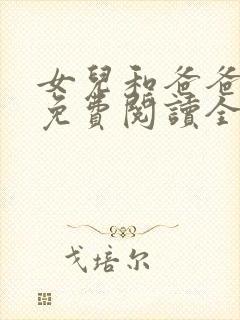 女兒和爸爸
免費閱讀全
戈培尔